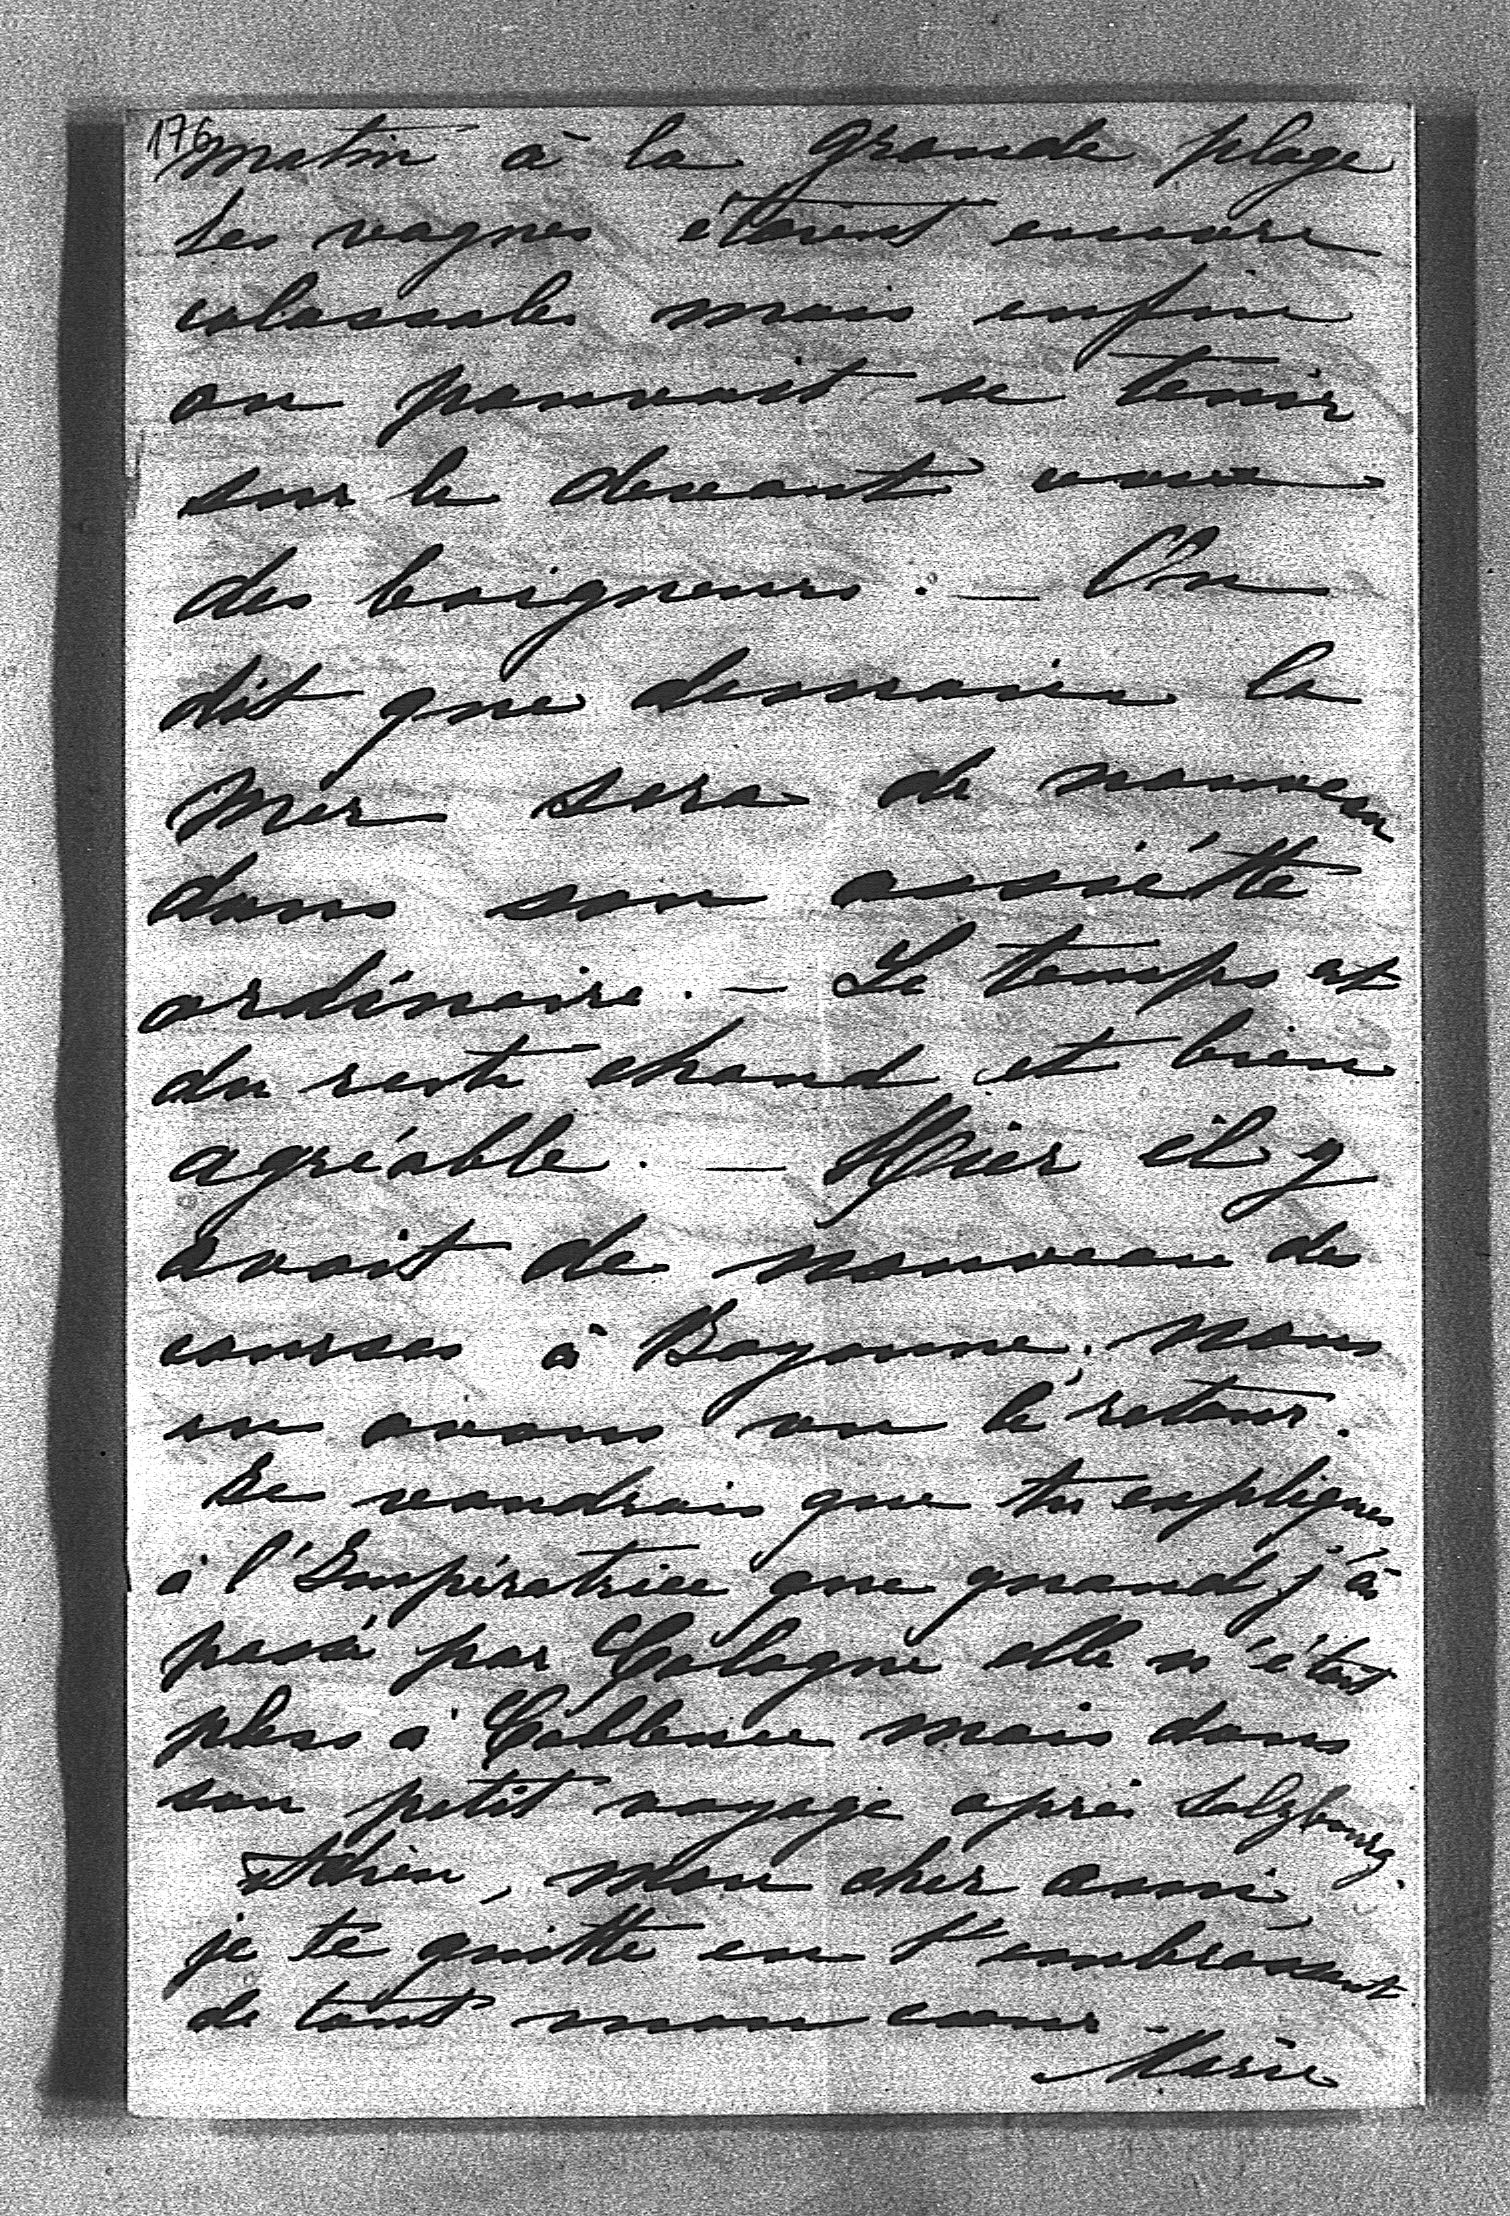 176
matin à la grande plage
Les vagues étaient encore
colossales mais enfin
on pouvait se tenir
sur le devant avec
des baigneurs. — On
dit que demain la
mer sera de nouveau
dans son assiétte
ordinaire. — Le temps est
du reste chaud et bien
agréable. — Hier il y
avait de nouveau des
courses à Bayonne, nous
en avons vu le retour.
Je voudrais que tu expliques
à l'Impératrice que quand j'ai
passé par Cologne elle n'était
plus à Coblence mais dans
son petit voyage après Salzbourg.
Adieu, mon cher ami,
je te quitte en t'embrassant
de tout mon cœur
Marie